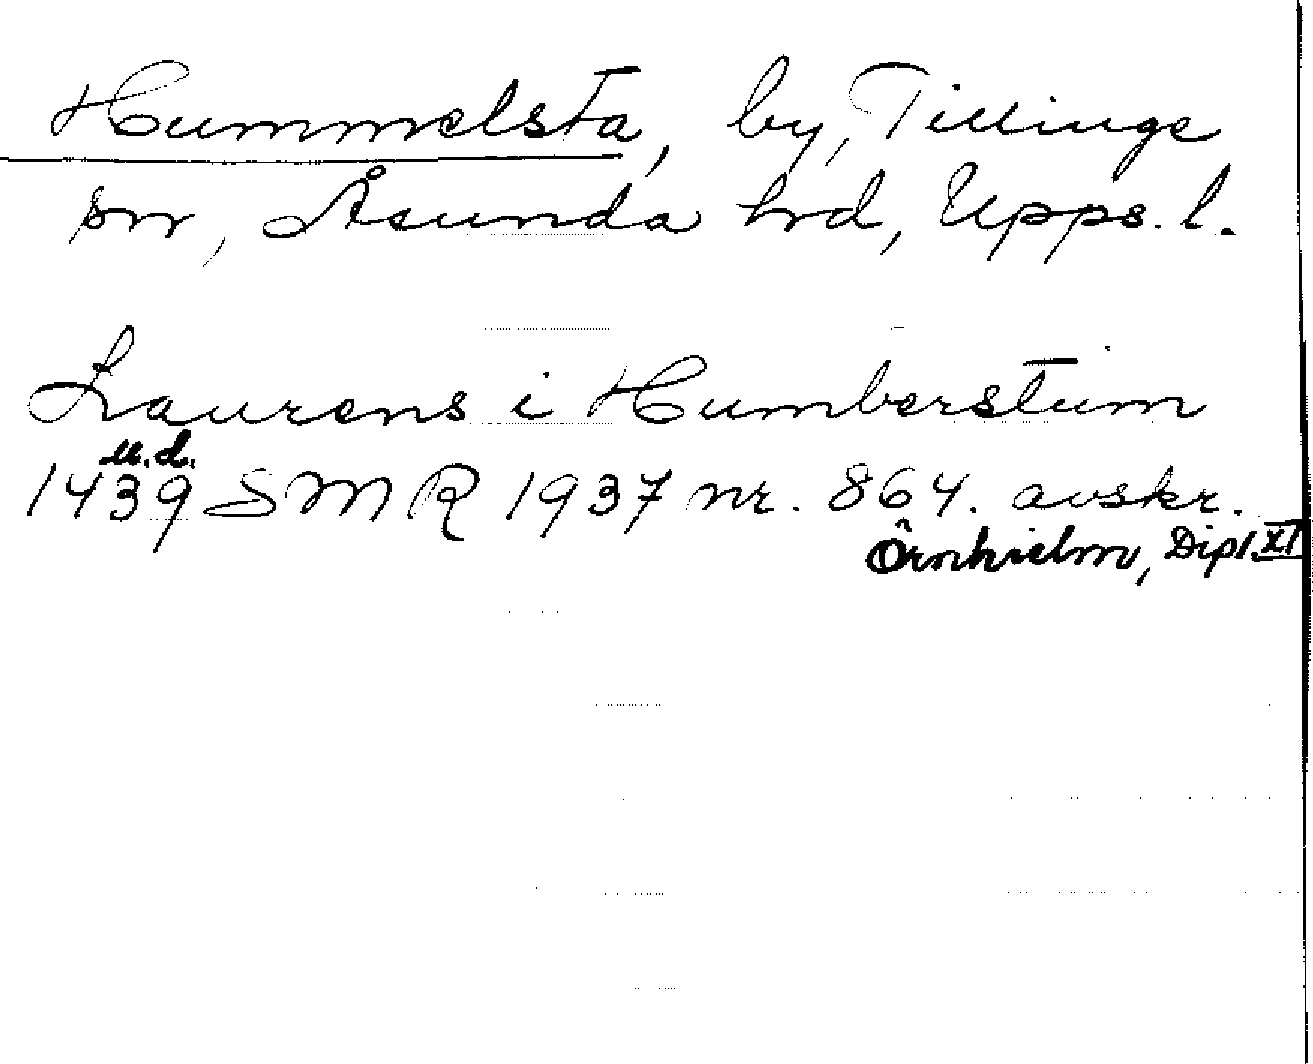 Hummelsta, by, Tillinge
sn, Åsunda hrd, Upps. l.
Laurens i Humberstum
u.d.
1439 SMR 1937 nr. 864. avskr.
Örnhielm, Dipl. XI